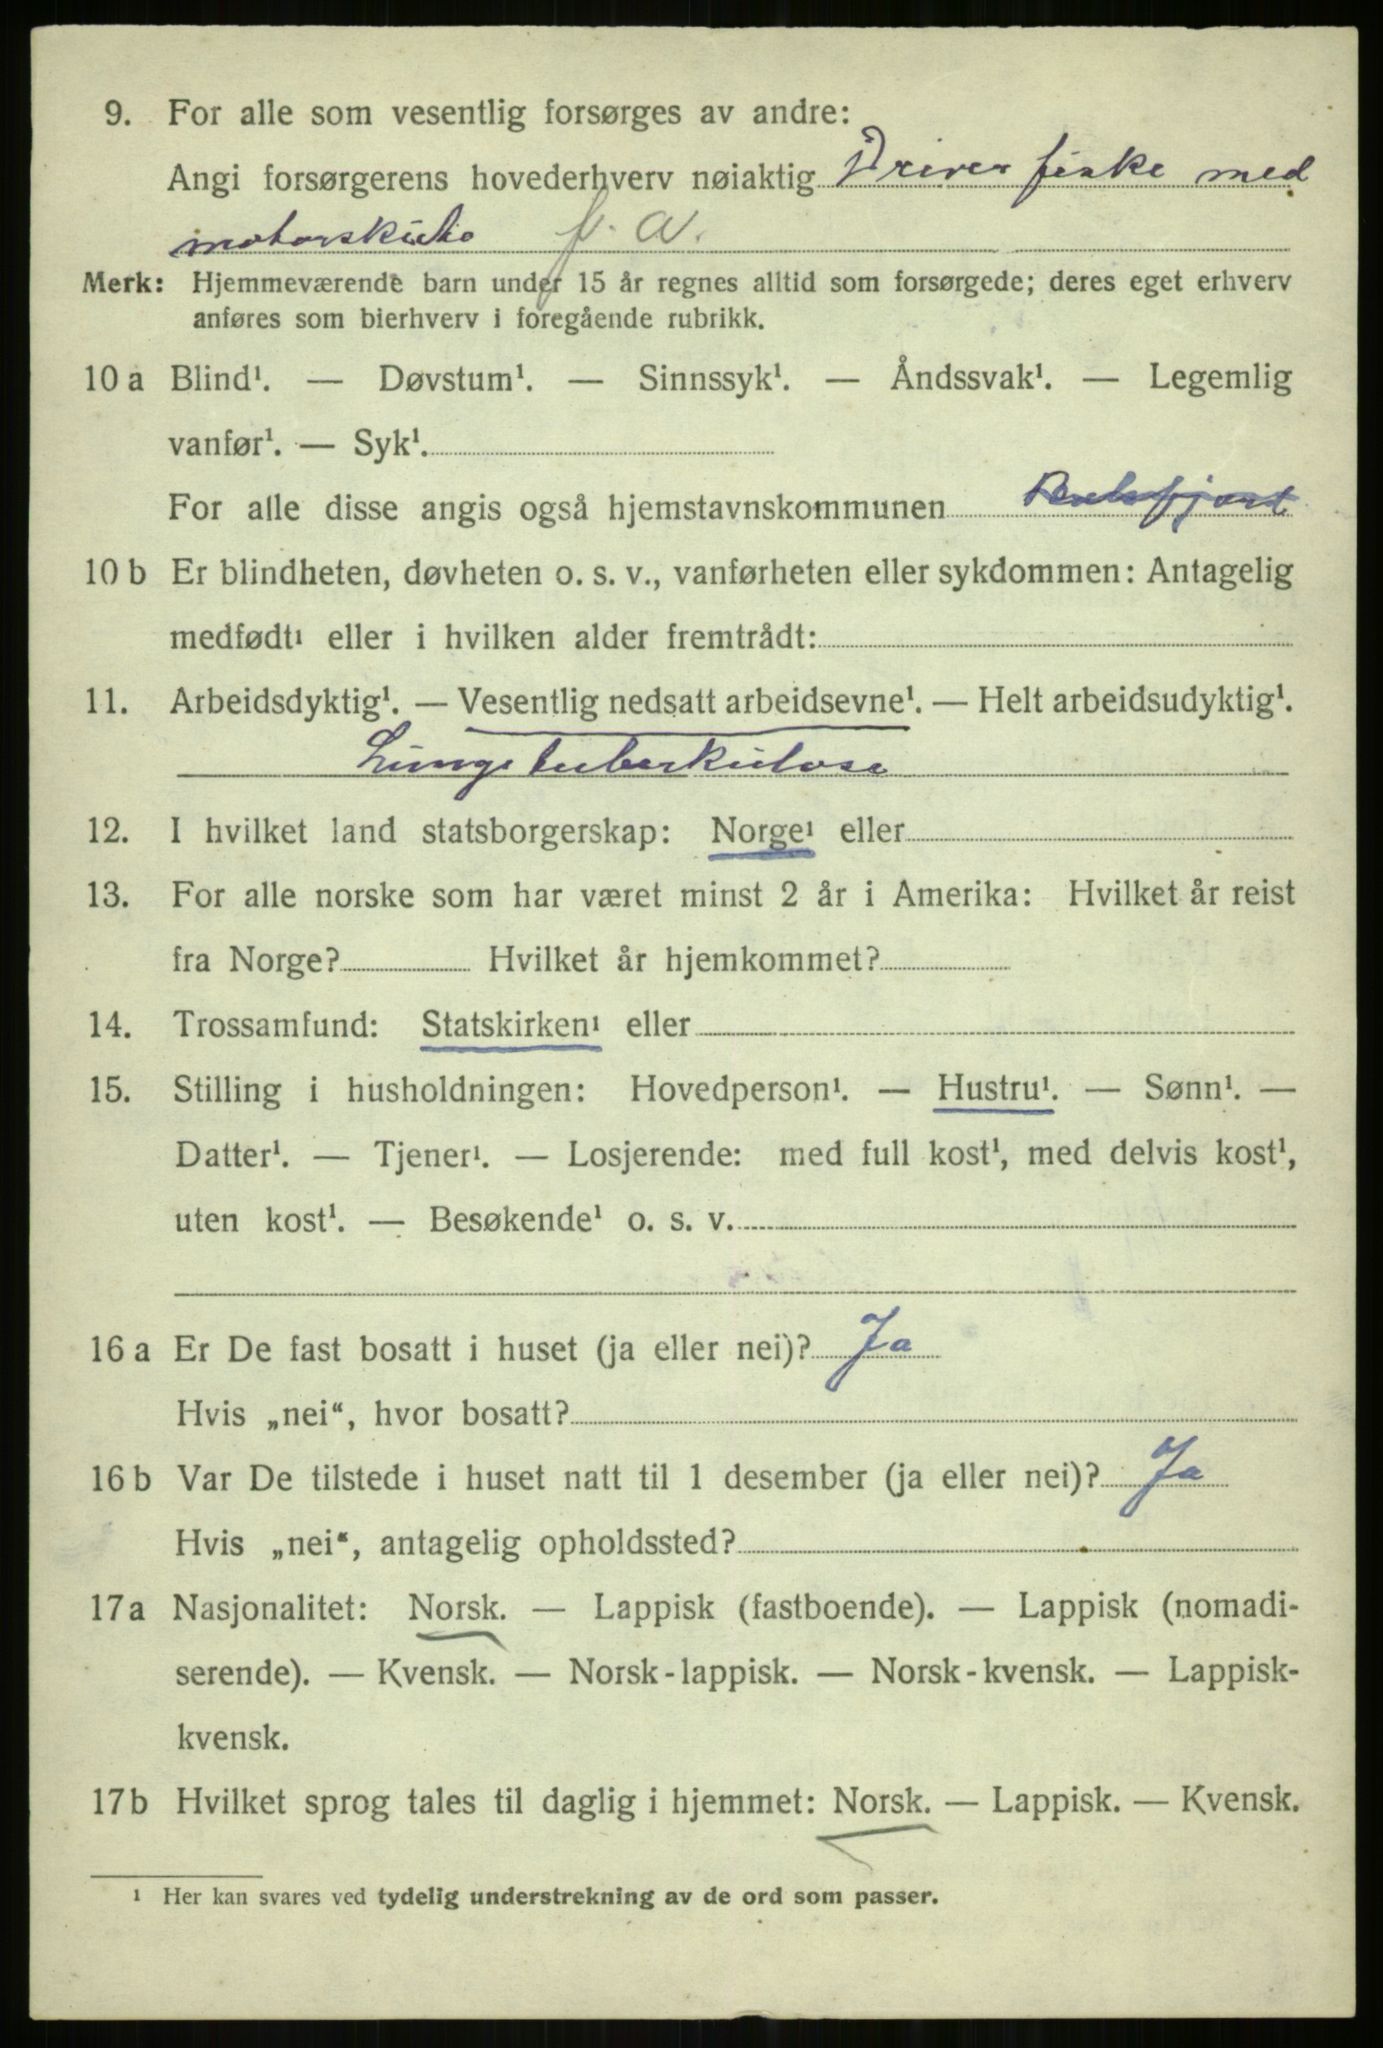 9. For alle som vesentlig forsørges av andre:
Angi forsørgerens hovederhverv nøiaktig Driver fiske med
motorskøite
Merk: Hjemmeværende barn under 15 år regnes alltid som forsørgede; deres eget erhverv
anføres som bierhverv i foregående rubrikk.
10 a Blind¹. — Døvstum¹. — Sinnssyk¹. — Åndssvak¹. — Legemlig
vanfør¹. — Syk¹.
For alle disse angis også hjemstavnskommunen
10 b Er blindheten, døvheten o. s. v., vanførheten eller sykdommen: Antagelig
medfødt¹ eller i hvilken alder fremtrådt:
11. Arbeidsdyktig¹. — Vesentlig nedsatt arbeidsevne¹. — Helt arbeidsudyktig¹.
Lungetuberkulose
12. I hvilket land statsborgerskap: Norge¹ eller
13. For alle norske som har været minst 2 år i Amerika: Hvilket år reist
fra Norge? Hvilket år hjemkommet?
14. Trossamfund: Statskirken¹ eller
15. Stilling i husholdningen: Hovedperson¹. — Hustru¹. — Sønn¹. —
Datter¹. — Tjener¹. — Losjerende: med full kost¹, med delvis kost¹,
uten kost¹. — Besøkende¹ o. s. v.
16 a Er De fast bosatt i huset (ja eller nei)? Ja
Hvis „nei“, hvor bosatt?
16 b Var De tilstede i huset natt til 1 desember (ja eller nei)? Ja
Hvis „nei“, antagelig opholdssted?
17 a Nasjonalitet: Norsk. — Lappisk (fastboende). — Lappisk (nomadi-
serende). — Kvensk. — Norsk-lappisk. — Norsk-kvensk. — Lappisk-
kvensk.
17 b Hvilket sprog tales til daglig i hjemmet: Norsk. — Lappisk. — Kvensk.
¹ Her kan svares ved tydelig understrekning av de ord som passer.